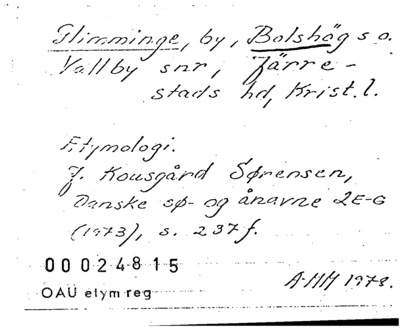 Glimminge, by, Bolshög s o.
Vallby snr, Järre-
stads hd, Krist. l.
Etymologi.
J. Kousgård Sørensen,
Danske sø- og ånavne 2E-G
(1973), s. 237 f.
00024815
OAU etym reg
A-MH 1978.